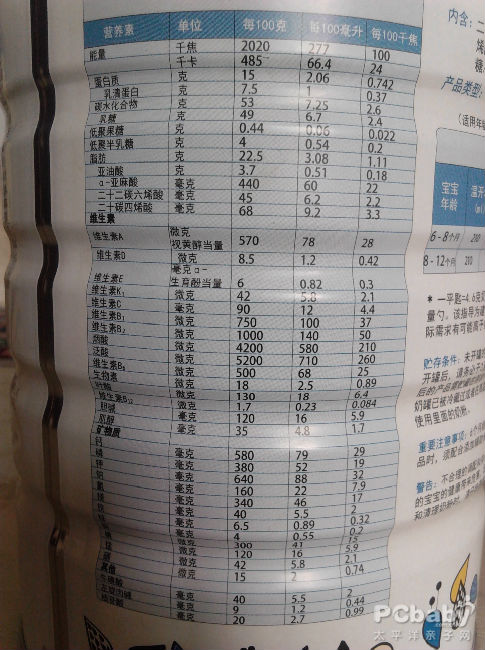 营养素 单位 每100克 每100毫升 每100千焦
能量 千焦 2020 277 100
千卡 485 66.4 24
蛋白质 克 15 2.06 0.742
乳清蛋白 克 7.5 1 0.37
碳水化合物 克 53 7.25 2.6
乳糖 克 49 6.7 2.4
低聚果糖 克 0.44 0.06 0.022
低聚半乳糖 克 4 0.54 0.2
脂肪 克 22.5 3.08 1.11
亚油酸 克 3.7 0.51 0.18
α-亚麻酸 毫克 440 60 22
二十二碳六烯酸 毫克 45 6.2 2.2
二十碳四烯酸 毫克 68 9.2 3.3
维生素
维生素A 微克视黄醇当量 570 78 28
维生素D 微克 8.5 1.2 0.42
维生素E 毫克α-生育酚当量 6 0.82 0.3
维生素K₁ 微克 42 5.8 2.1
维生素C 毫克 90 12 4.4
维生素B₁ 微克 750 100 37
维生素B₂ 微克 1000 140 50
烟酸 微克 4200 580 210
泛酸 微克 5200 710 260
维生素B₆ 微克 500 68 25
生物素 微克 18 2.5 0.89
叶酸 微克 130 18 6.4
维生素B₁₂ 微克 1.7 0.23 0.084
胆碱 毫克 120 16 5.9
肌醇 毫克 35 4.8 1.7
矿物质
钙 毫克 580 79 29
磷 毫克 380 52 19
钾 毫克 640 88 32
毫克 160 22 7.9
毫克 340 46 17
毫克 40 5.5 2
毫克 6.5 0.89 0.32
毫克 4 0.55 0.2
微克 300 41 15
微克 120 16 5.9
微克 42 5.8 2.1
微克 15 2 0.74
其他
牛磺酸 毫克 40 5.5 2
左旋肉碱 毫克 9 1.2 0.44
核苷酸 毫克 20 2.7 0.99
内含:二
产品类型:
(适用年龄
宝宝年龄
6-8个月 210
8-12个月 210
* 一平匙=4.6克
量勺。该指导为建
际需求有可能高于
贮存条件:未开罐
使用里面的奶粉。
重要注意事项:6个月
品时,须配合添加辅
警告:不合理的
的宝宝的健康带来危害
PCbaby
太平洋亲子网